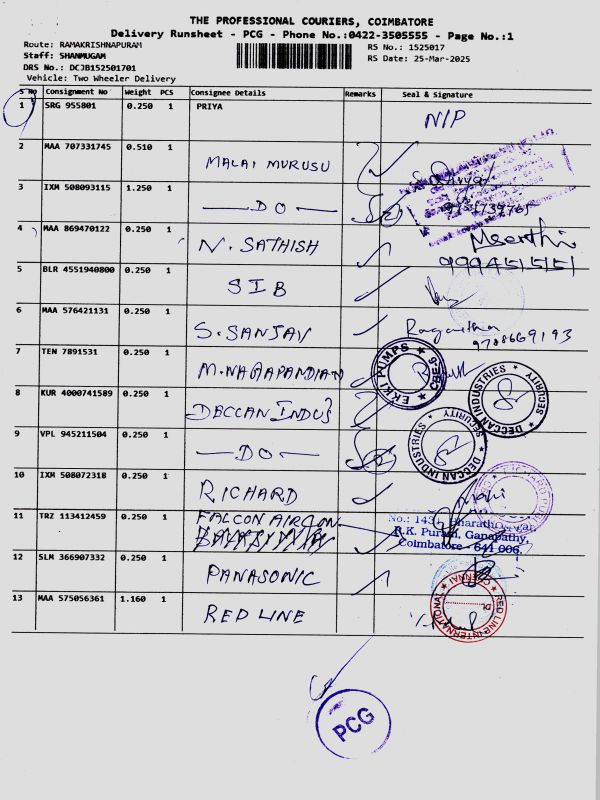 THE PROFESSIONAL COURIERS, COIMBATORE
Delivery Runsheet - PCG - Phone No.:0422-3505555 - Page No.:1
Route: RAMAKRISHNAPURAM
RS No.: 1525017
Staff: SHANMUGAM
RS Date: 25-Mar-2025
DRS No.: DCJB152501701
Vehicle: Two Wheeler Delivery
S No Consignment No Weight PCS Consignee Details Remarks Seal & Signature
1 SRG 955801 0.250 1 PRIYA N/P
2 MAA 707331745 0.510 1 MALAI MURUSU
3 IXM 508093115 1.250 1 — DO —
4 MAA 869470122 0.250 1 N. SATHISH
5 BLR 4551940800 0.250 1 SIB
6 MAA 576421131 0.250 1 S. SANJAV 9788669193
7 TEN 7891531 0.250 1 M. NAGAPANDIAN EKKI PUMPS CBE-6
8 KUR 4000741589 0.250 1 DECCAN INDUS DECCAN INDUSTRIES SECURITY
9 VPL 945211504 0.250 1 — DO — DECCAN INDUSTRIES SECURITY
10 IXM 508072318 0.250 1 RICHARD
11 TRZ 113412459 0.250 1 FALCON AIRCON
R.K. Puram, Ganapathy,
Coimbatore - 641 006.
12 SLM 366907332 0.250 1 PANASONIC
13 MAA 575056361 1.160 1 RED LINE RED LINE INTERNATIONAL CHENNAI
PCG